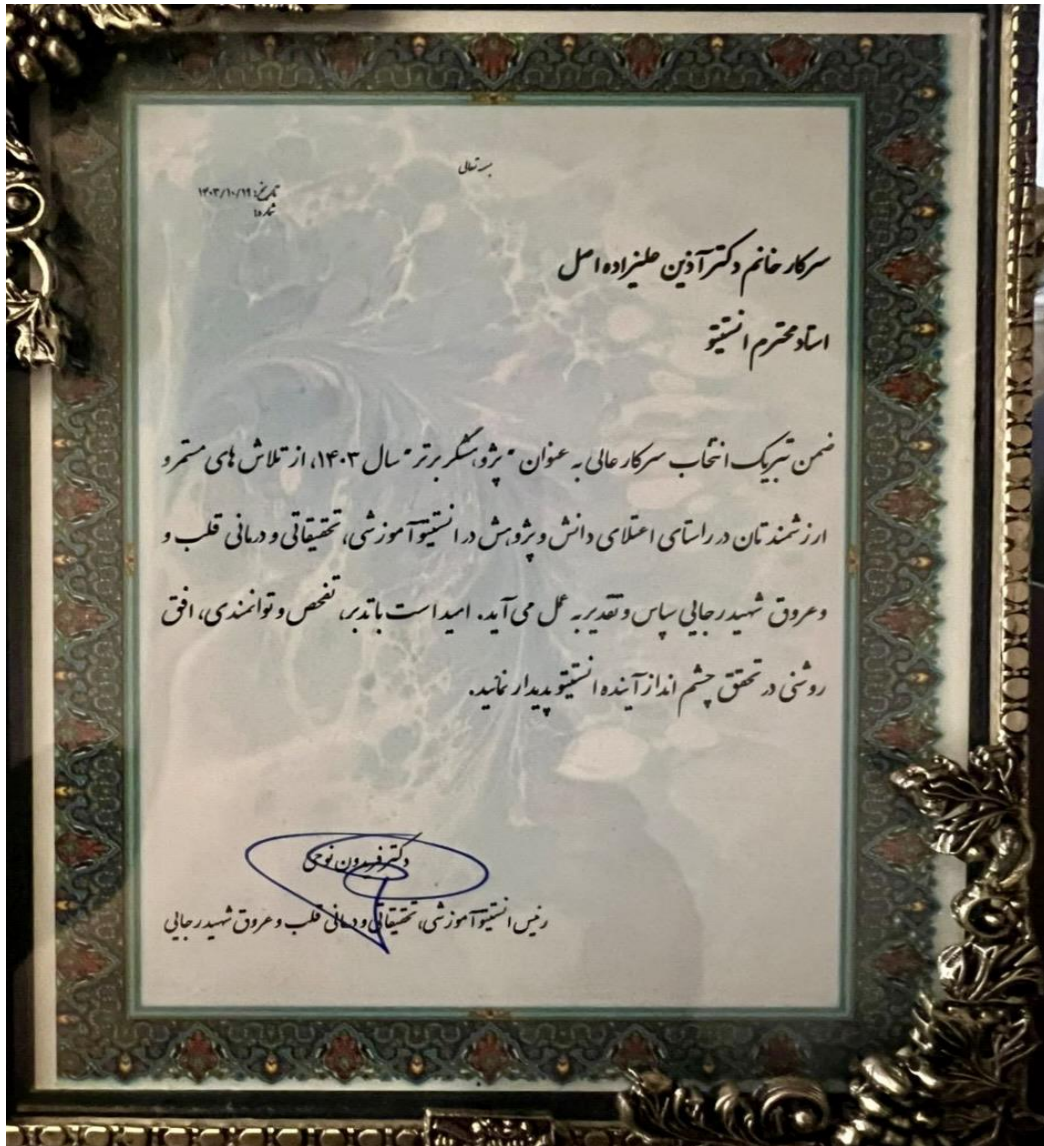 بسمه تعالی
تاریخ: ۱۴۰۳/۱۰/۱۹
شماره:
سرکار خانم دکتر آذین علیزاده اصل
استاد محترم انستیتو
ضمن تبریک انتخاب سرکار عالی به عنوان " پژوهشگر برتر " سال ۱۴۰۳، از تلاش های مستمر و
ارزشمندتان در راستای اعتلای دانش و پژوهش در انستیتو آموزشی، تحقیقاتی و درمانی قلب و
وعروق شهید رجایی سپاس و تقدیر به عمل می آید. امید است با تدبر، تفحص و توانمندی، افق
روشنی در تحقق چشم انداز آینده انستیتو پدیدار نمائید.
دکتر فریدون نوحی
رئیس انستیتو آموزشی، تحقیقاتی و درمانی قلب و عروق شهید رجایی